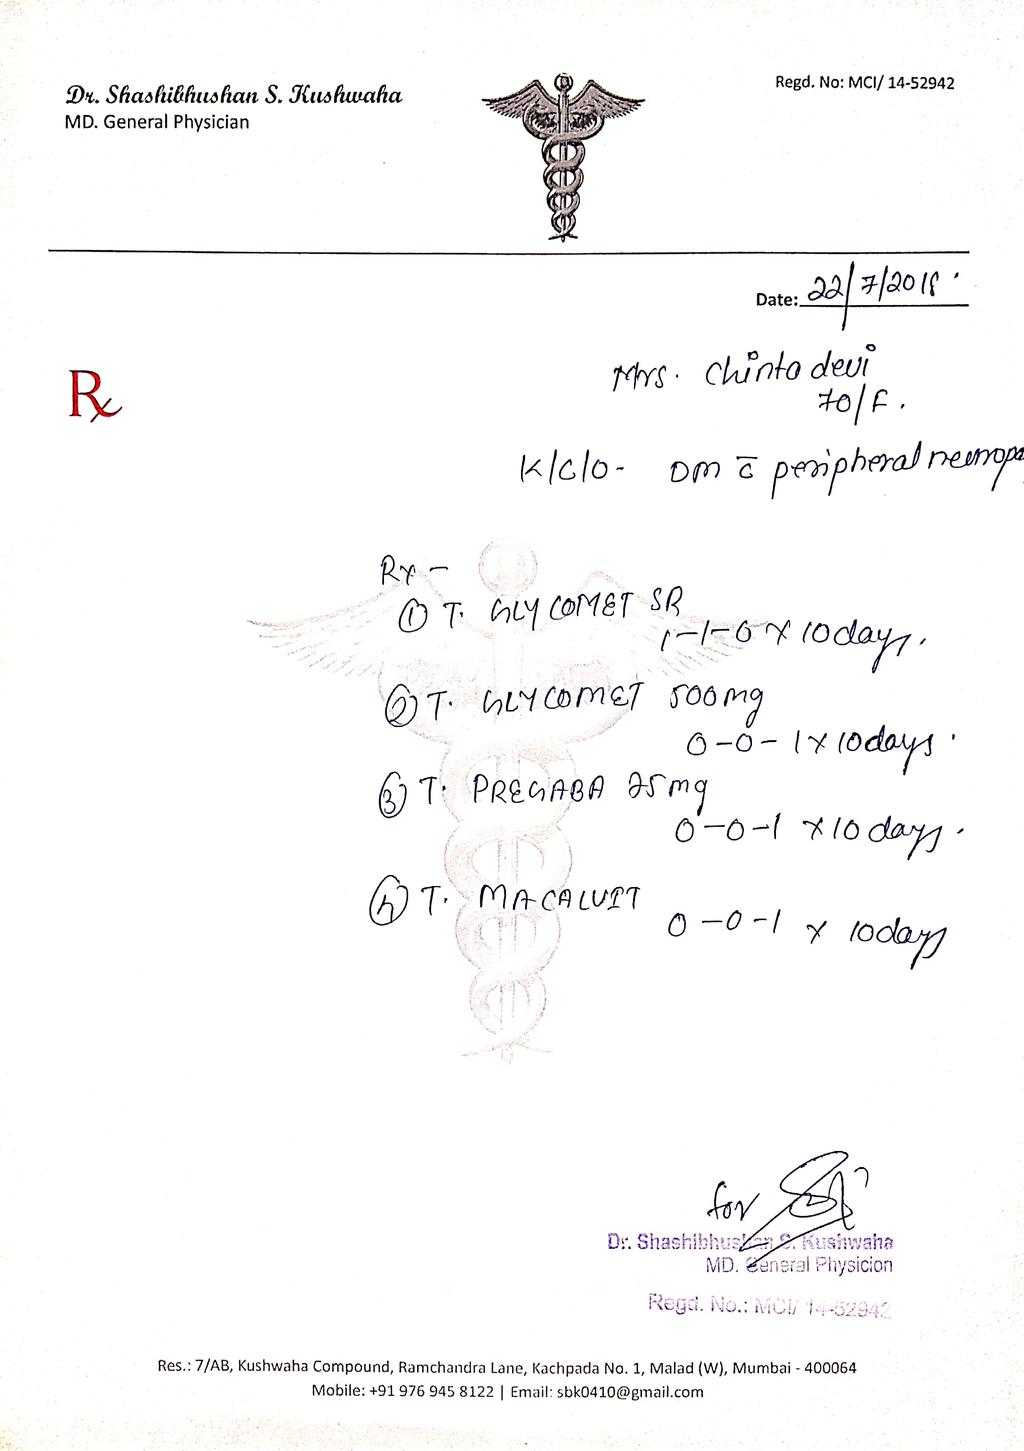 Dr. Shashibhushan S. Kushwaha
MD. General Physician
Regd. No: MCI/ 14-52942
Date: 22/7/2018
Rx
Mrs. Chinta devi
70/F.
K/C/O- DM c̄ peripheral neuropa
Rx -
① T. GLYCOMET SR
1-1-0 x 10 days.
② T. GLYCOMET 500 mg
0-0-1 x 10 days.
③ T. PREGABA 75 mg
0-0-1 x 10 days.
④ T. MACALVIT
0-0-1 x 10 days
for
Dr. Shashibhushan S. Kushwaha
MD. General Physicion
Regd. No.: MCI/ 14-52942
Res.: 7/AB, Kushwaha Compound, Ramchandra Lane, Kachpada No. 1, Malad (W), Mumbai - 400064
Mobile: +91 976 945 8122 | Email: sbk0410@gmail.com